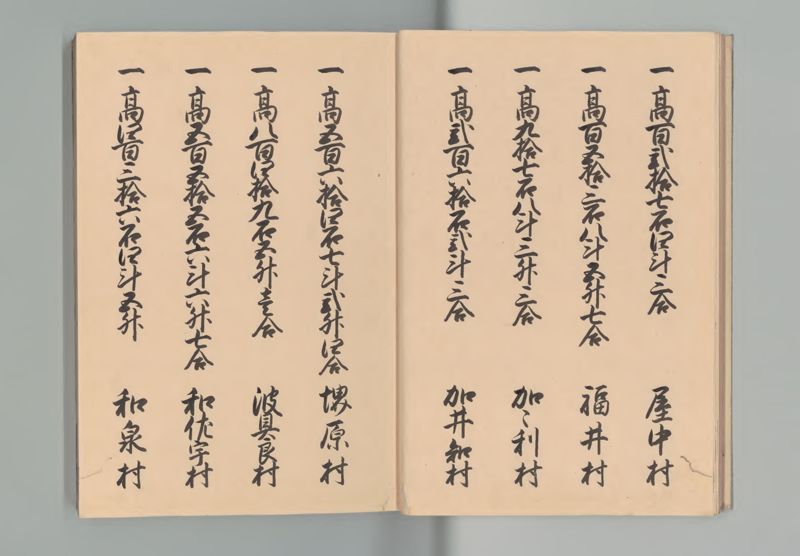 一高百弐拾七石四斗三合 屋中村
一高百五拾三石八斗五升七合 福井村
一高九拾七石八斗三升三合 加々利村
一高弐百六拾石弐斗三合 加井知村
一高五百六拾四石七斗弐升四合 堺原村
一高八百四拾九石五升壱合 波具良村
一高五百五拾五石六斗六升七合 和佐宇村
一高四百三拾六石四斗五升 和泉村